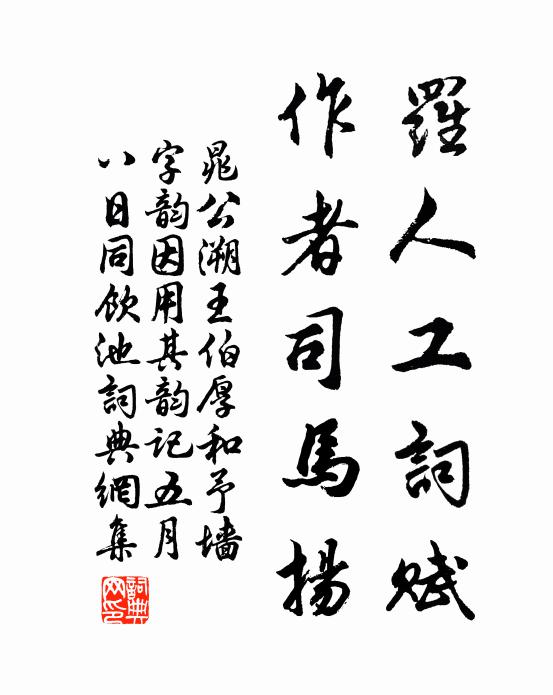 羅人工詞賦
作者司馬揚
晁公溯王伯厚和予墻
字韵因用其韵記五月
八日同飲池詞典網集
詞典網印